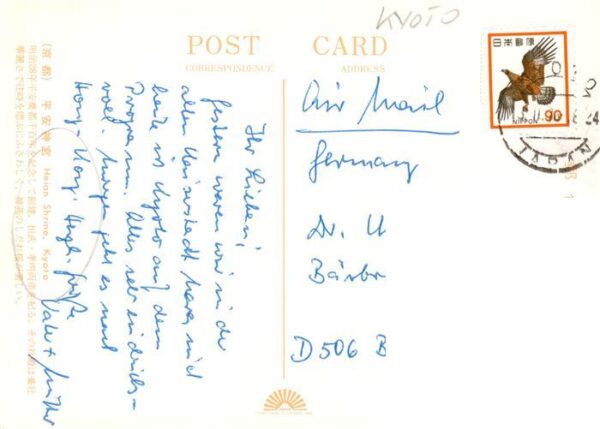 KYOTO
POST CARD
CORRESPONDENCE
ADDRESS
日本郵便
NIPPON 90
JAPAN
Air Mail
Germany
Dr. U
Bärbe
D 506 B
Ihr Lieben!
gestern waren wir in der
alten Kaiserstadt Nara und
heute ist Kyoto auf dem
Programm. Alles sehr eindrucks-
voll. Morgen geht es nach
Hong-Kong. Herzl. Grüße
Vater + Mutter
(京都) 平安神宮 Heian Shrine, Kyoto